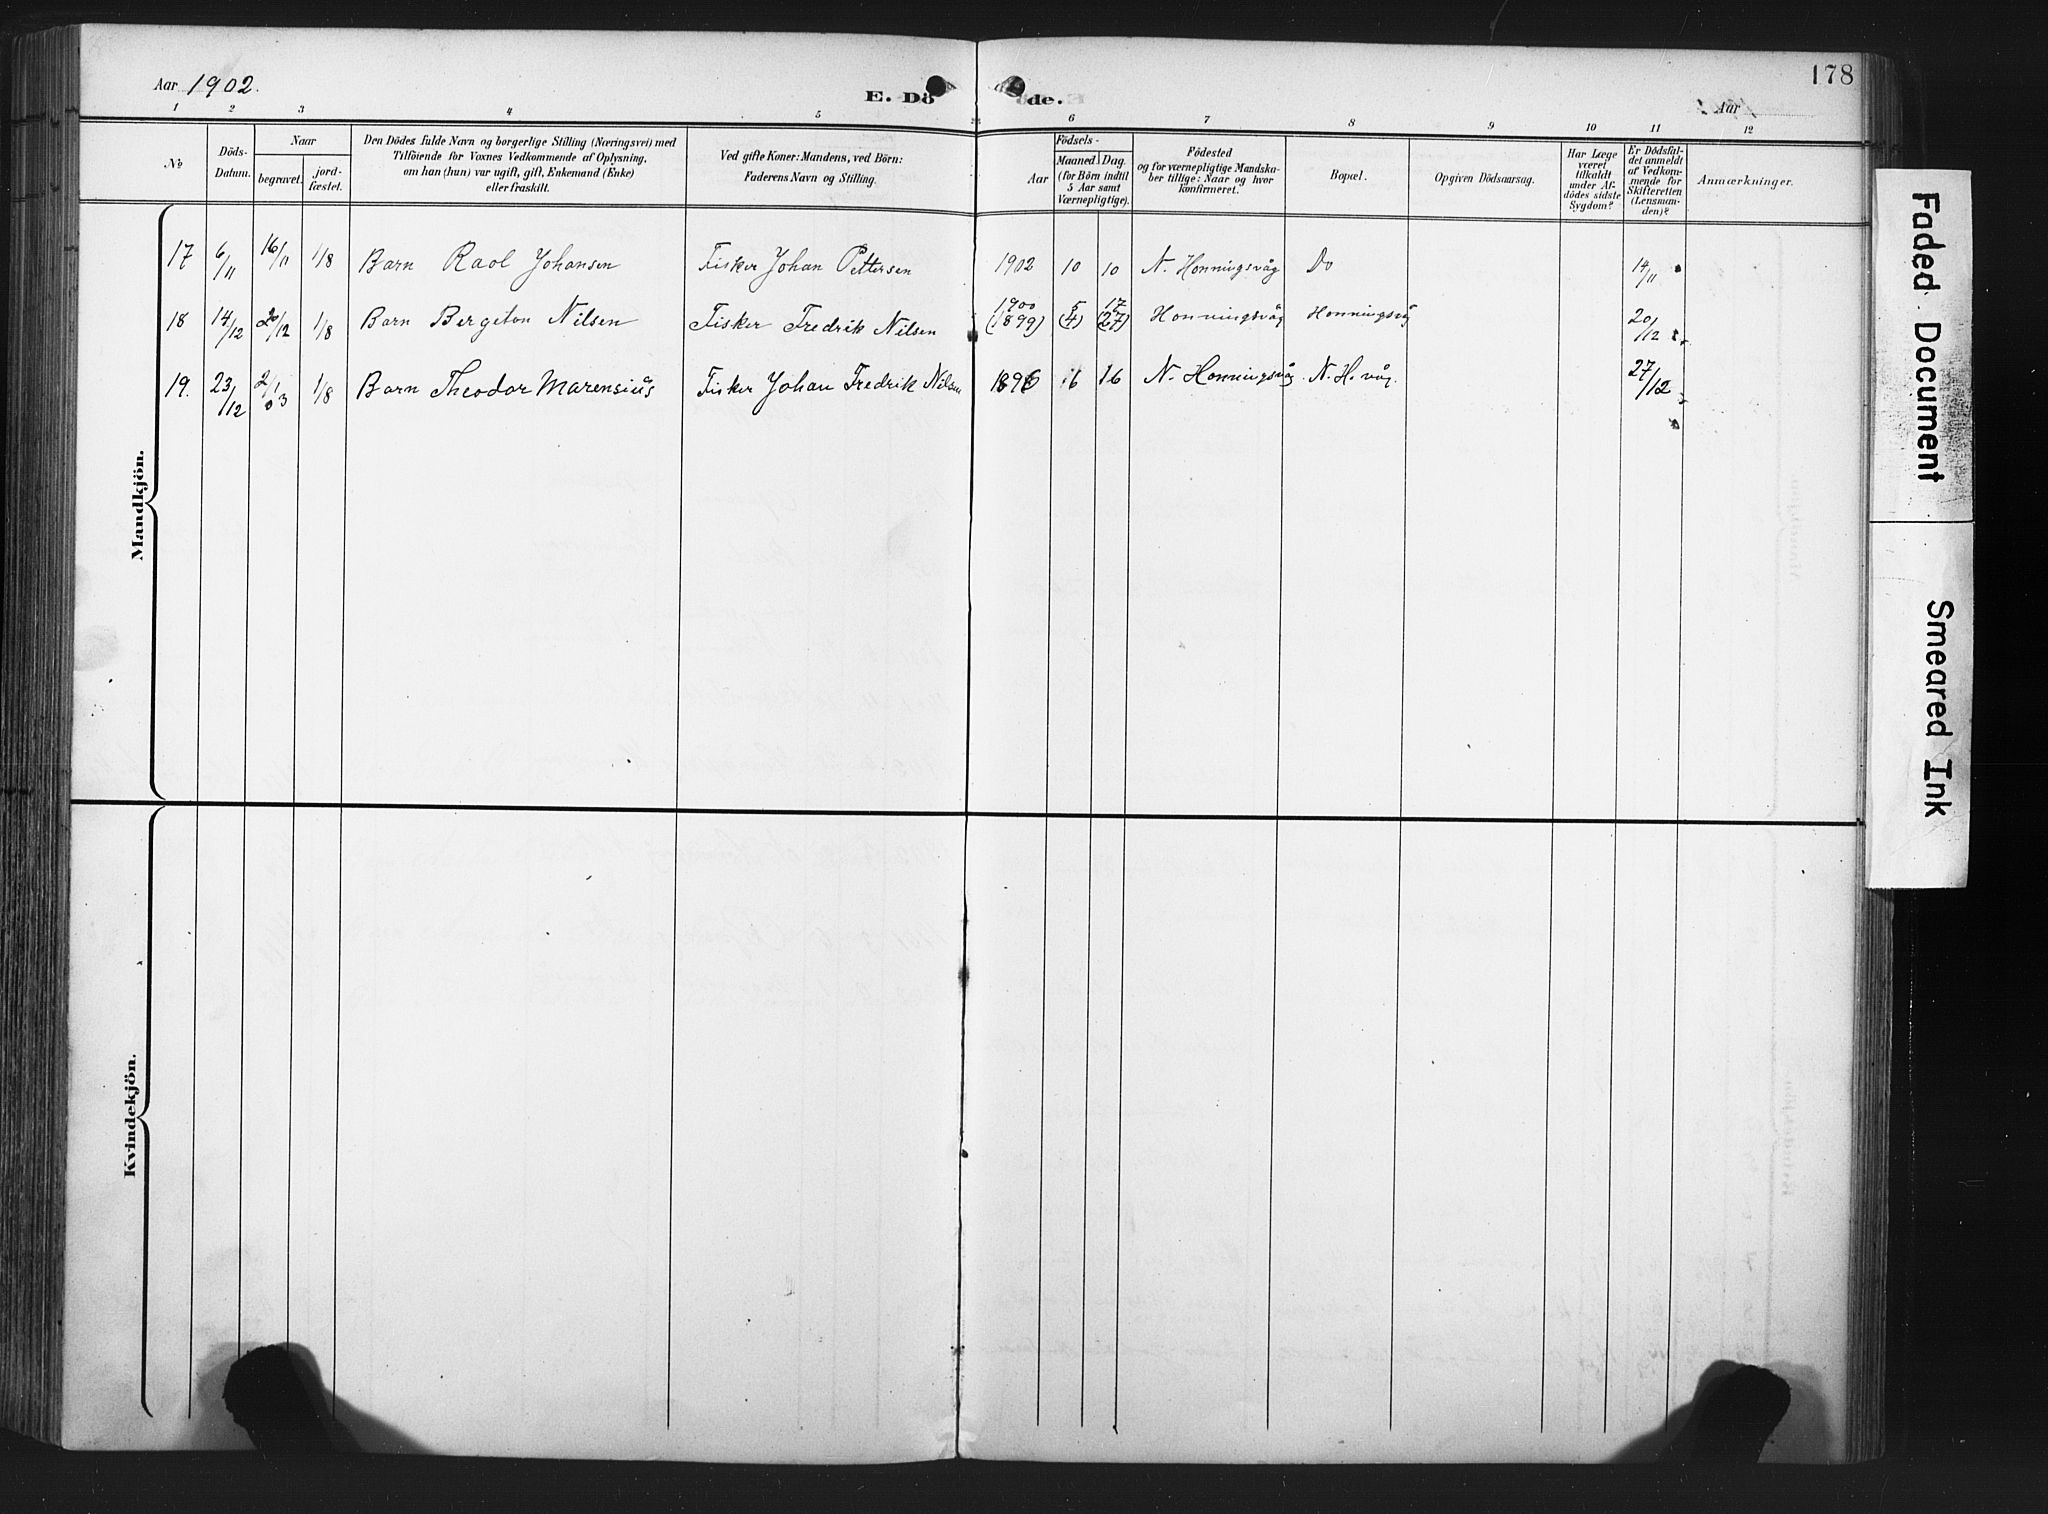 178
Aar 1902.
E. Dö
öde.
Aar
1 2 3 4 5 6 7 8 9 10 11 12
No
Döds-
Datum.
Naar
begravet.
jord-
fæstet.
Den Dödes fulde Navn og borgerlige Stilling (Næringsvei) med
Tilföiende for Voxnes Vedkommende af Oplysning,
om han (hun) var ugift, gift, Enkemand (Enke)
eller fraskilt.
Ved gifte Koner: Mandens, ved Börn:
Faderens Navn og Stilling.
Födsels-
Aar
Maaned. Dag.
(for Börn indtil
5 Aar samt
Værnepligtige).
Födested
og for værnepligtige Mandska-
ber tillige: Naar og hvor
konfirmeret.
Bopæl.
Opgiven Dödsaarsag.
Har Læge
været
tilkaldt
under Af-
dödes sidste
Sygdom?
Er Dödsfal-
det anmeldt
af Vedkom-
mende for
Skifteretten
(Lensman-
den)?
Anmærkninger.
Mandkjön.
17 6/11 16/11 1/8 Barn Raol Johansen Fisker Johan Pettersen 1902 10 10 N. Honningsvåg Do 14/11
18 14/12 20/12 1/8 Barn Bergeton Nilsen Fisker Fredrik Nilsen 1900 (1899) 5 (4) 17 (27) Honningsvåg Honningsvåg 20/12
19. 23/12 2/1 03 1/8 Barn Theodor Marensius Fisker Johan Fredrik Nilsen 1896 6 16 N. Honningsvåg N. H. våg. 27/12
Kvindekjön.
Faded Document
Smeared Ink